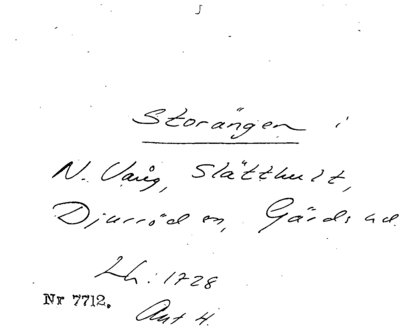 Storängen i
N. Vång, Slätthult,
Djurröd sn, Gärds hd.
Lh: 1728
Nr 7712.
Ant 4.